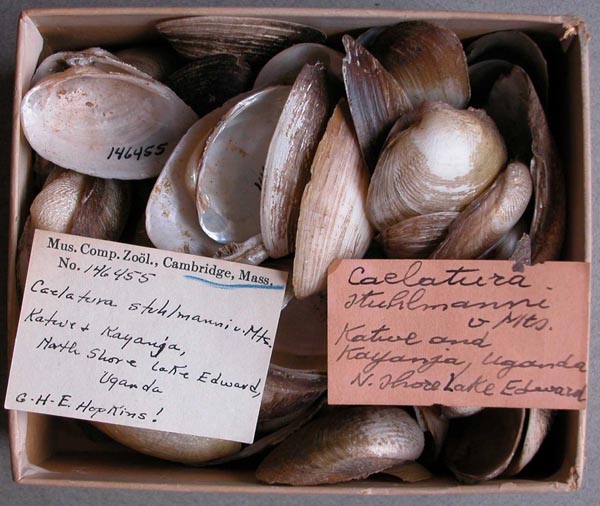 146455
Mus. Comp. Zoöl., Cambridge, Mass.
No. 146455
Caelatura stuhlmanni v. Mts.
Katwe & Kayanja,
North Shore Lake Edward,
Uganda
G.H.E. Hopkins!
Caelatura
stuhlmanni
v Mts.
Katwe and
Kayanja, Uganda
N. Shore Lake Edward